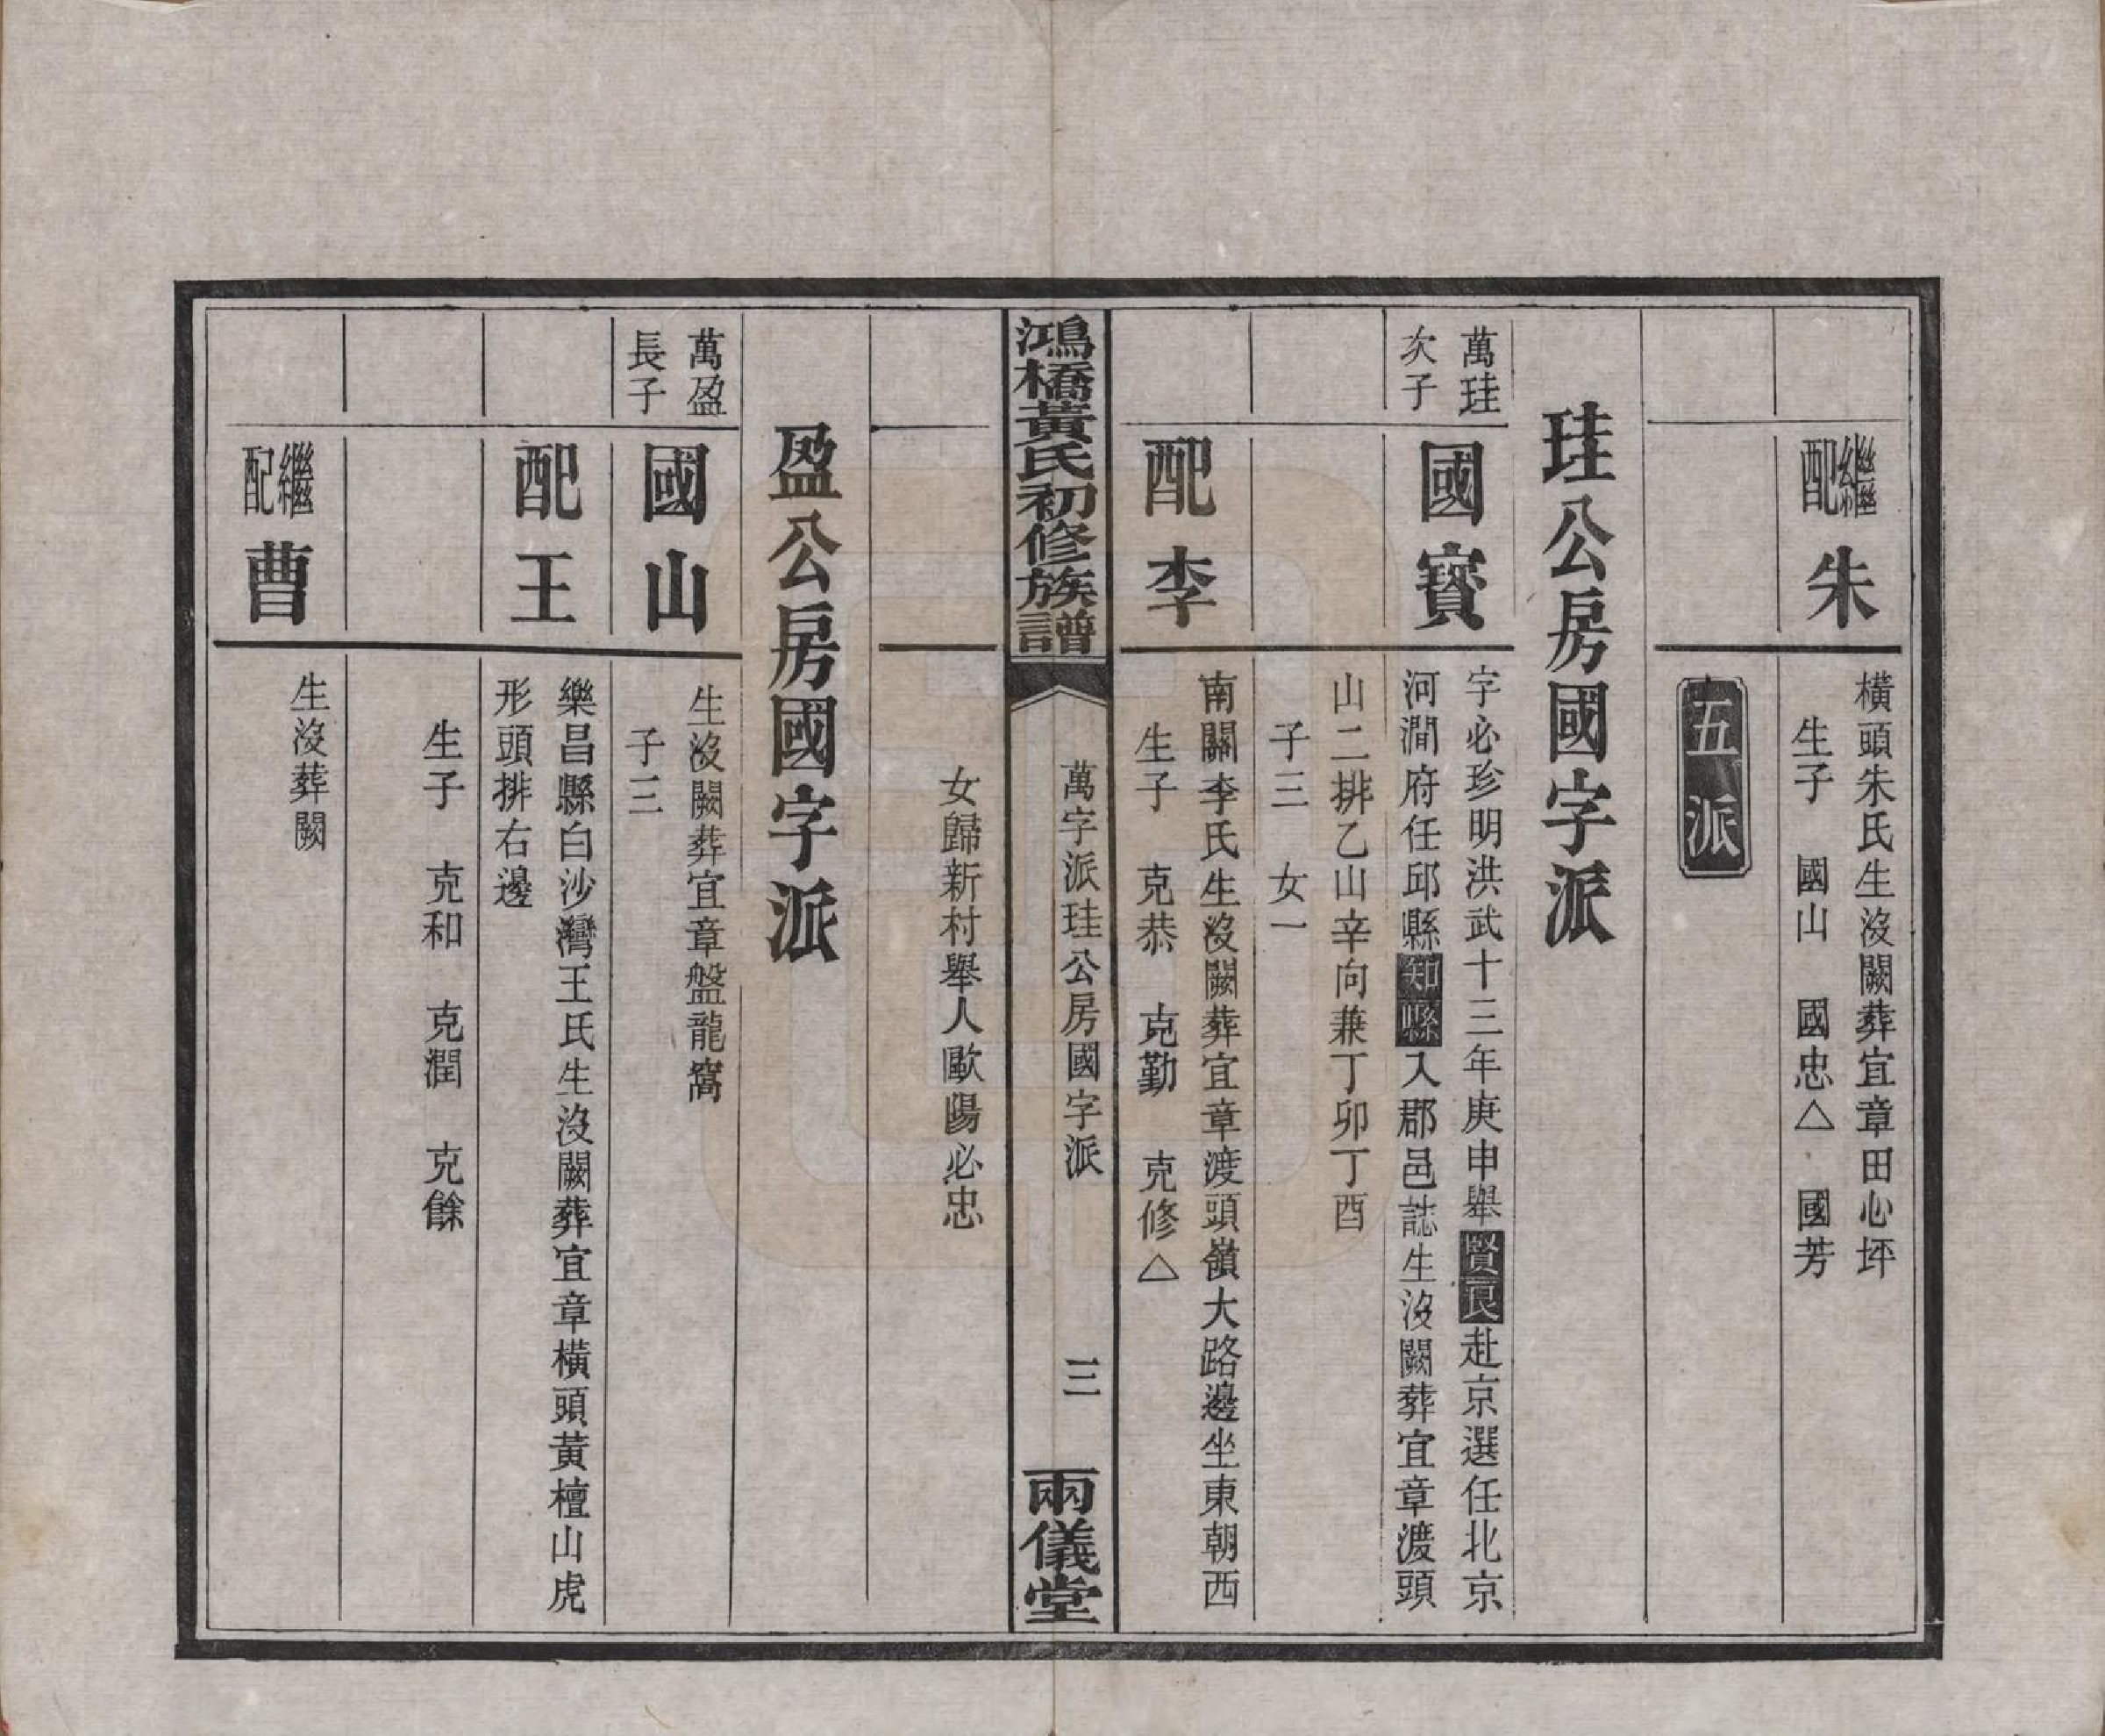 繼配
朱
橫頭朱氏生沒闕葬宜章田心坪
生子　國山　國忠△　國芳
五派
珪公房國字派
萬珪
次子
國寳
字必珍明洪武十三年庚申舉賢良赴京選任北京
河澗府任邱縣知縣入郡邑誌生沒闕葬宜章渡頭
山二排乙山辛向兼丁卯丁酉
子三　女一
配李
南關李氏生沒闕葬宜章渡頭嶺大路邊坐東朝西
生子　克恭　克勤　克修△
鴻橋黃氏初修族譜
萬字派珪公房國字派
三
兩儀堂
女歸新村舉人歐陽必忠
盈公房國字派
萬盈
長子
國山
生沒闕葬宜章盤龍窩
子三
配王
樂昌縣白沙灣王氏生沒闕葬宜章橫頭黃檀山虎
形頭排右邊
生子　克和　克潤　克餘
繼配
曹
生沒葬闕